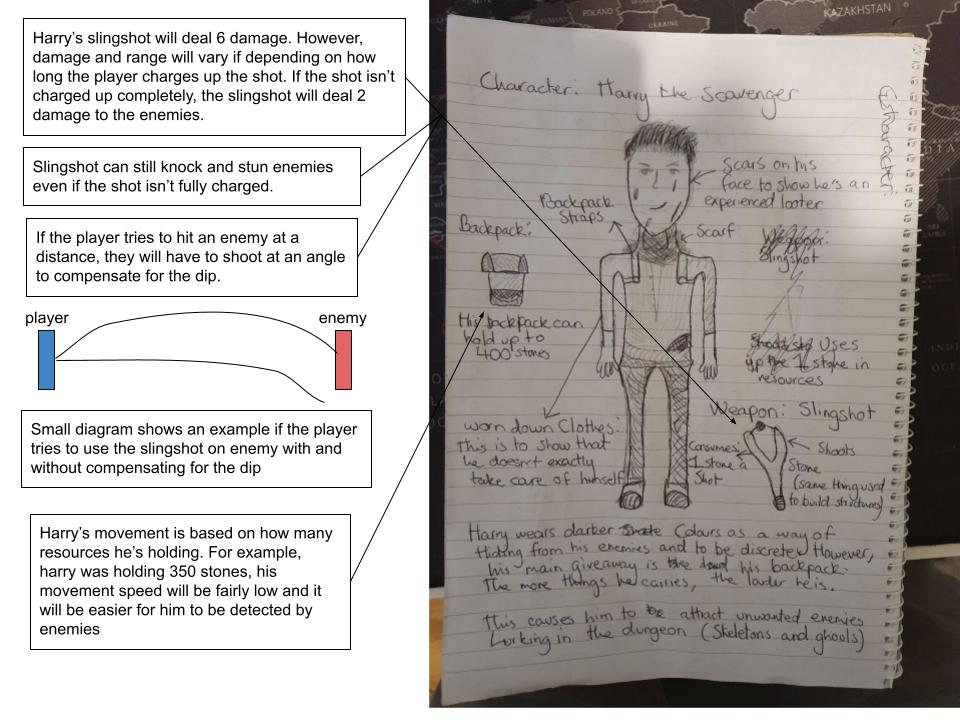 Harry's slingshot will deal 6 damage. However,
damage and range will vary if depending on how
long the player charges up the shot. If the shot isn't
charged up completely, the slingshot will deal 2
damage to the enemies.
Slingshot can still knock and stun enemies
even if the shot isn't fully charged.
If the player tries to hit an enemy at a
distance, they will have to shoot at an angle
to compensate for the dip.
player
enemy
Small diagram shows an example if the player
tries to use the slingshot on enemy with and
without compensating for the dip
Harry's movement is based on how many
resources he's holding. For example,
harry was holding 350 stones, his
movement speed will be fairly low and it
will be easier for him to be detected by
enemies
POLAND
UKRAINE
KAZAKHSTAN
Character: Harry the Scavenger
Scars on his
face to show he's an
experienced looter
Backpack
Straps
Scarf
Backpack:
Weapon:
Slingshot
His backpack can
hold up to
400 stones
Uses
up the 1 stone in
resources
Weapon: Slingshot
worn down Clothes:
This is to show that
he doesn't exactly
take care of himself
Consumes
1 stone a
Shot
Shoots
Stone
(same thing used
to build structures)
Harry wears darker Colours as a way of
Hiding from his enemies and to be discrete. However,
his main giveaway is his backpack.
The more things he carries, the louder he is.
This causes him to attract unwanted enemies
Lurking in the dungeon (Skeletons and ghouls)